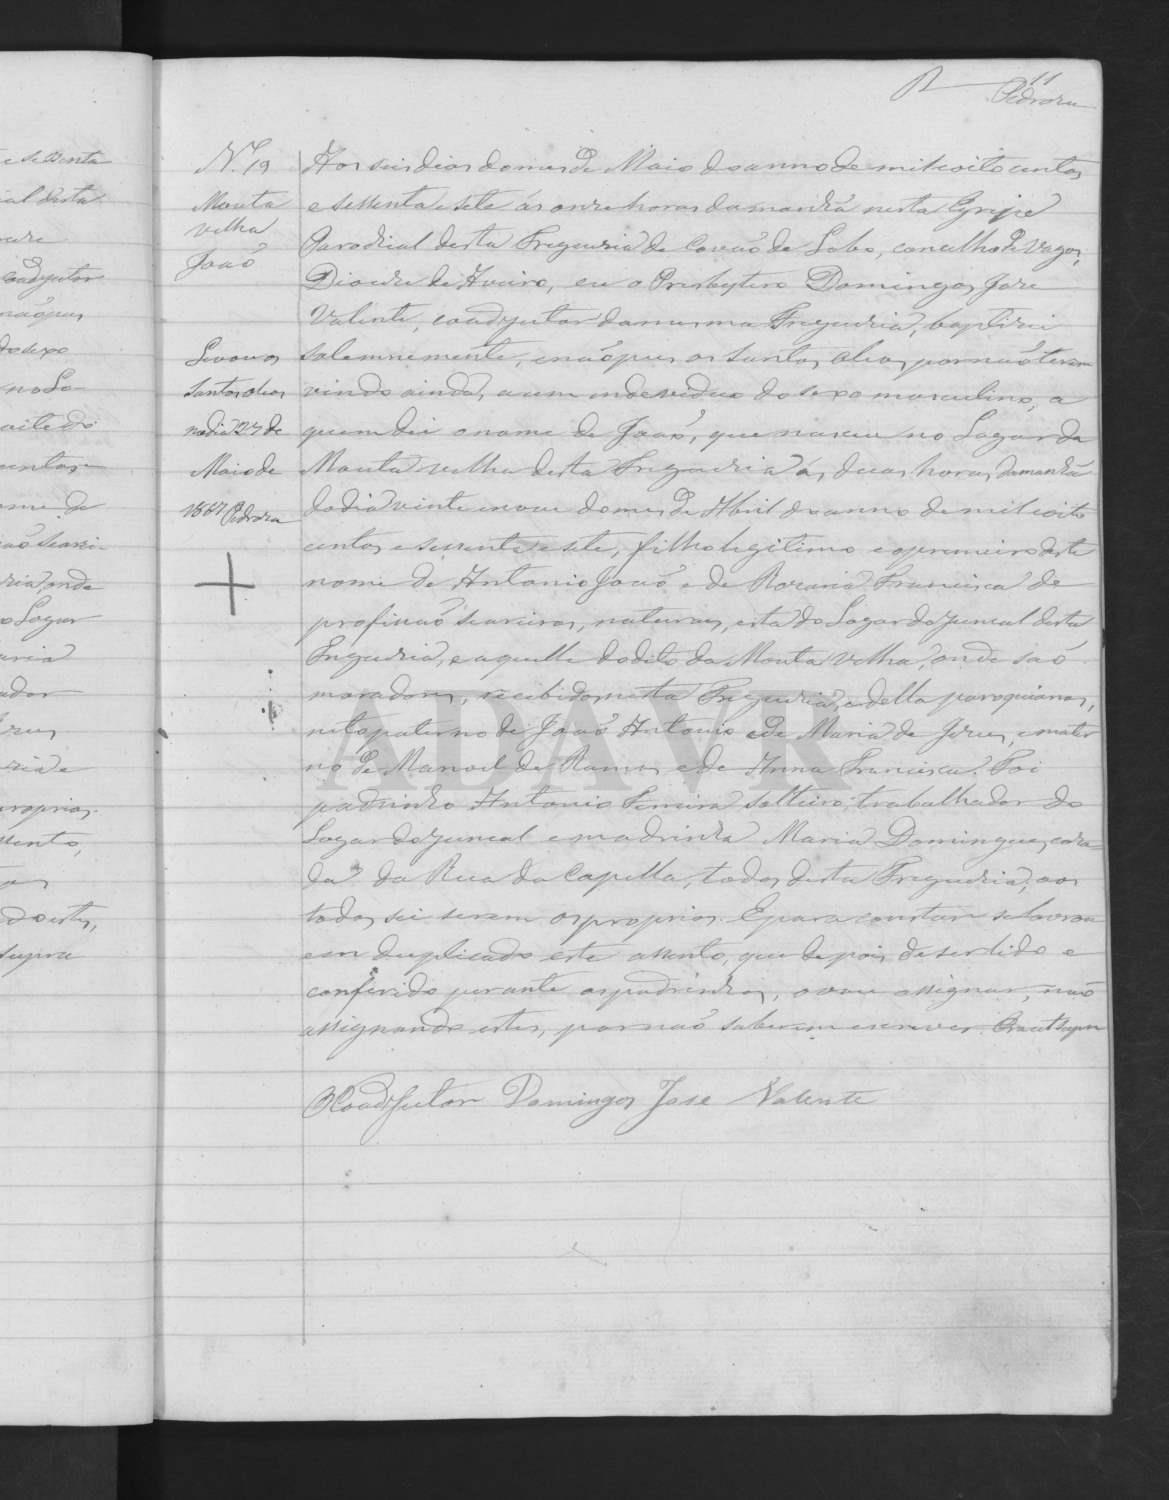 11
Pedroza
N.º 19
Mouta
velha
João
Levou os
santos oleos
no dia 27 de
Maio de
1867 Pedroza
Aos seis dias do mes de Maio do anno de mil e oito centos
e sessenta e sete ás onze horas da manhã nesta Egreja
Parochial desta Freguezia de Covaõ do Lobo, concelho de Vagos,
Diocese de Aveiro, eu o Presbytero Domingos Jose
Valente, coadjutor da mesma Freguezia, baptizei
solemnemente, e naõ pus os santos oleos, por naõ terem
vindo ainda, a um individuo do sexo masculino, a
quem dei o nome de Joaõ, que nasceu no Lugar da
Mouta velha desta Freguezia ás duas horas da manhã
do dia vinte e nove do mes de Abril do anno de mil e oito
centos e sessenta e sete, filho legitimo e o primeiro deste
nome de Antonio Joaõ e de Rozaria Francisca de
profissaõ seareiros, naturaes, esta do Lugar do Juncal desta
Freguezia, e aquelle do dito da Mouta velha, onde saõ
moradores, recebidos nesta Freguezia, e della paroquianos,
neto paterno de Joaõ Antonio e de Maria de Jezus, e mater
no de Manoel de Ramos e de Anna Francisca. Foi
padrinho Antonio Ferreira solteiro, trabalhador do
Lugar do Juncal e madrinha Maria Domingues, caza-
da da Rua da Capella, todos desta Freguezia, os
todos sei serem os proprios. E para constar se lavrou
em duplicado este assento, que depois de ser lido e
conferido perante os padrinhos, o vou assignar, naõ
assignando estes, por naõ saberem escrever. Era ut supra
O Coadjutor Domingos Jose Valente
ADAVR
e sessenta
ial desta
coadjutor
do sexo
no Lu
oite do
centos
me de
ria, onde
o Lugar
aria
ador
ria e
proprios.
ssento,
do estes,
supra